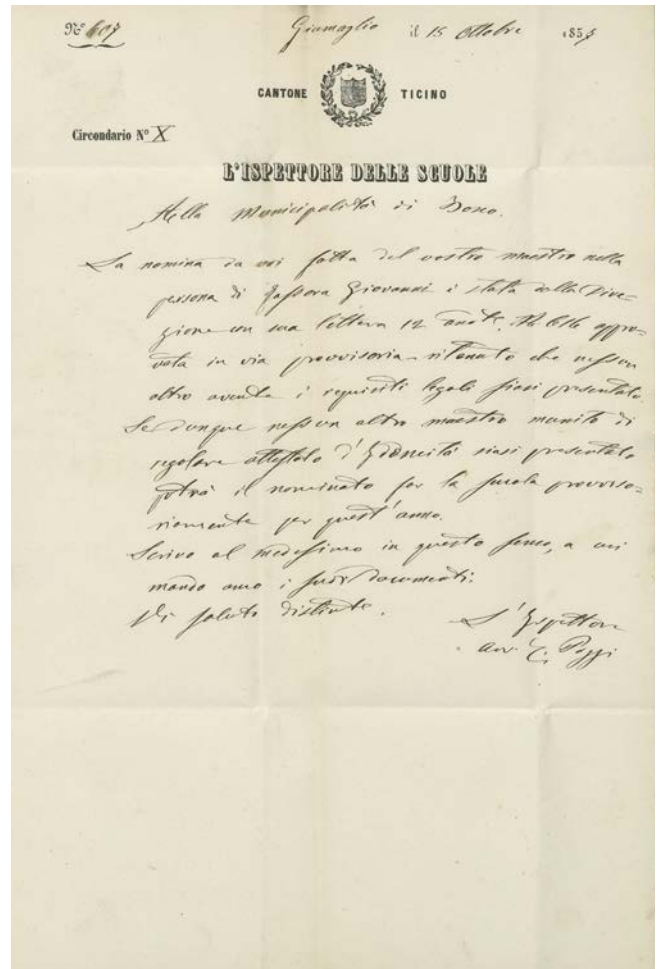 Nº 607 Giumaglio il 15 Ottobre 1857
CANTONE TICINO
Circondario Nº X
L'ISPETTORE DELLE SCUOLE
Alla Municipalità di Bosco.
La nomina da voi fatta del vostro maestro nella
persona di Giovanni è stata dalla Dire=
zione con sua lettera 12 and.te appro=
vata in via provvisoria ritenuto che nessun
altro avente i requisiti legali siasi presentato.
Se dunque nessun altro maestro munito di
regolare attestato d'Idoneità siasi presentato
potrà il nominato far la scuola provviso=
riamente per quest'anno.
Scrivo al medesimo in questo senso, a cui
mando anco i suoi documenti.
Vi saluto distinte.
L'Ispettore
Avv. Pozzi